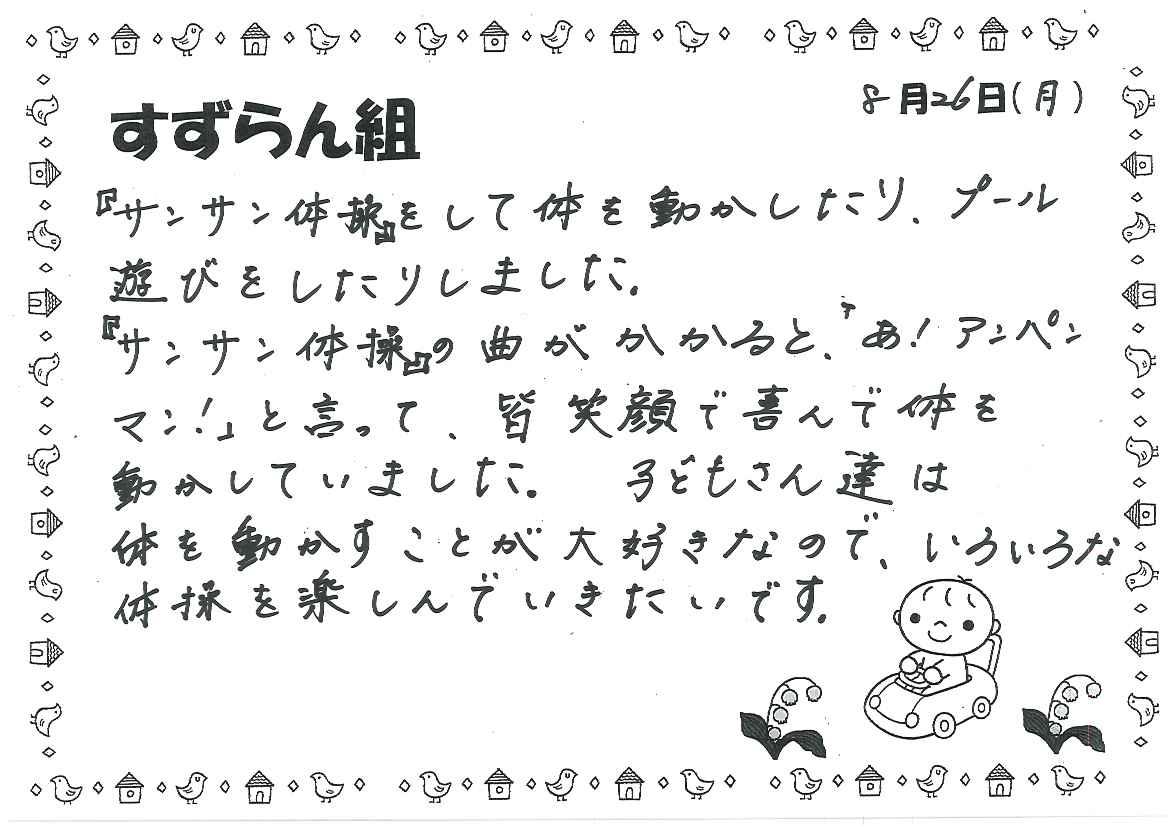 8月26日(月)
すずらん組
『サンサン体操』をして体を動かしたり、プール
遊びをしたりしました。
『サンサン体操』の曲がかかると、「あ!アンパン
マン!」と言って、皆笑顔で喜んで体を
動かしていました。 子どもさん達は
体を動かすことが大好きなので、いろいろな
体操を楽しんでいきたいです。